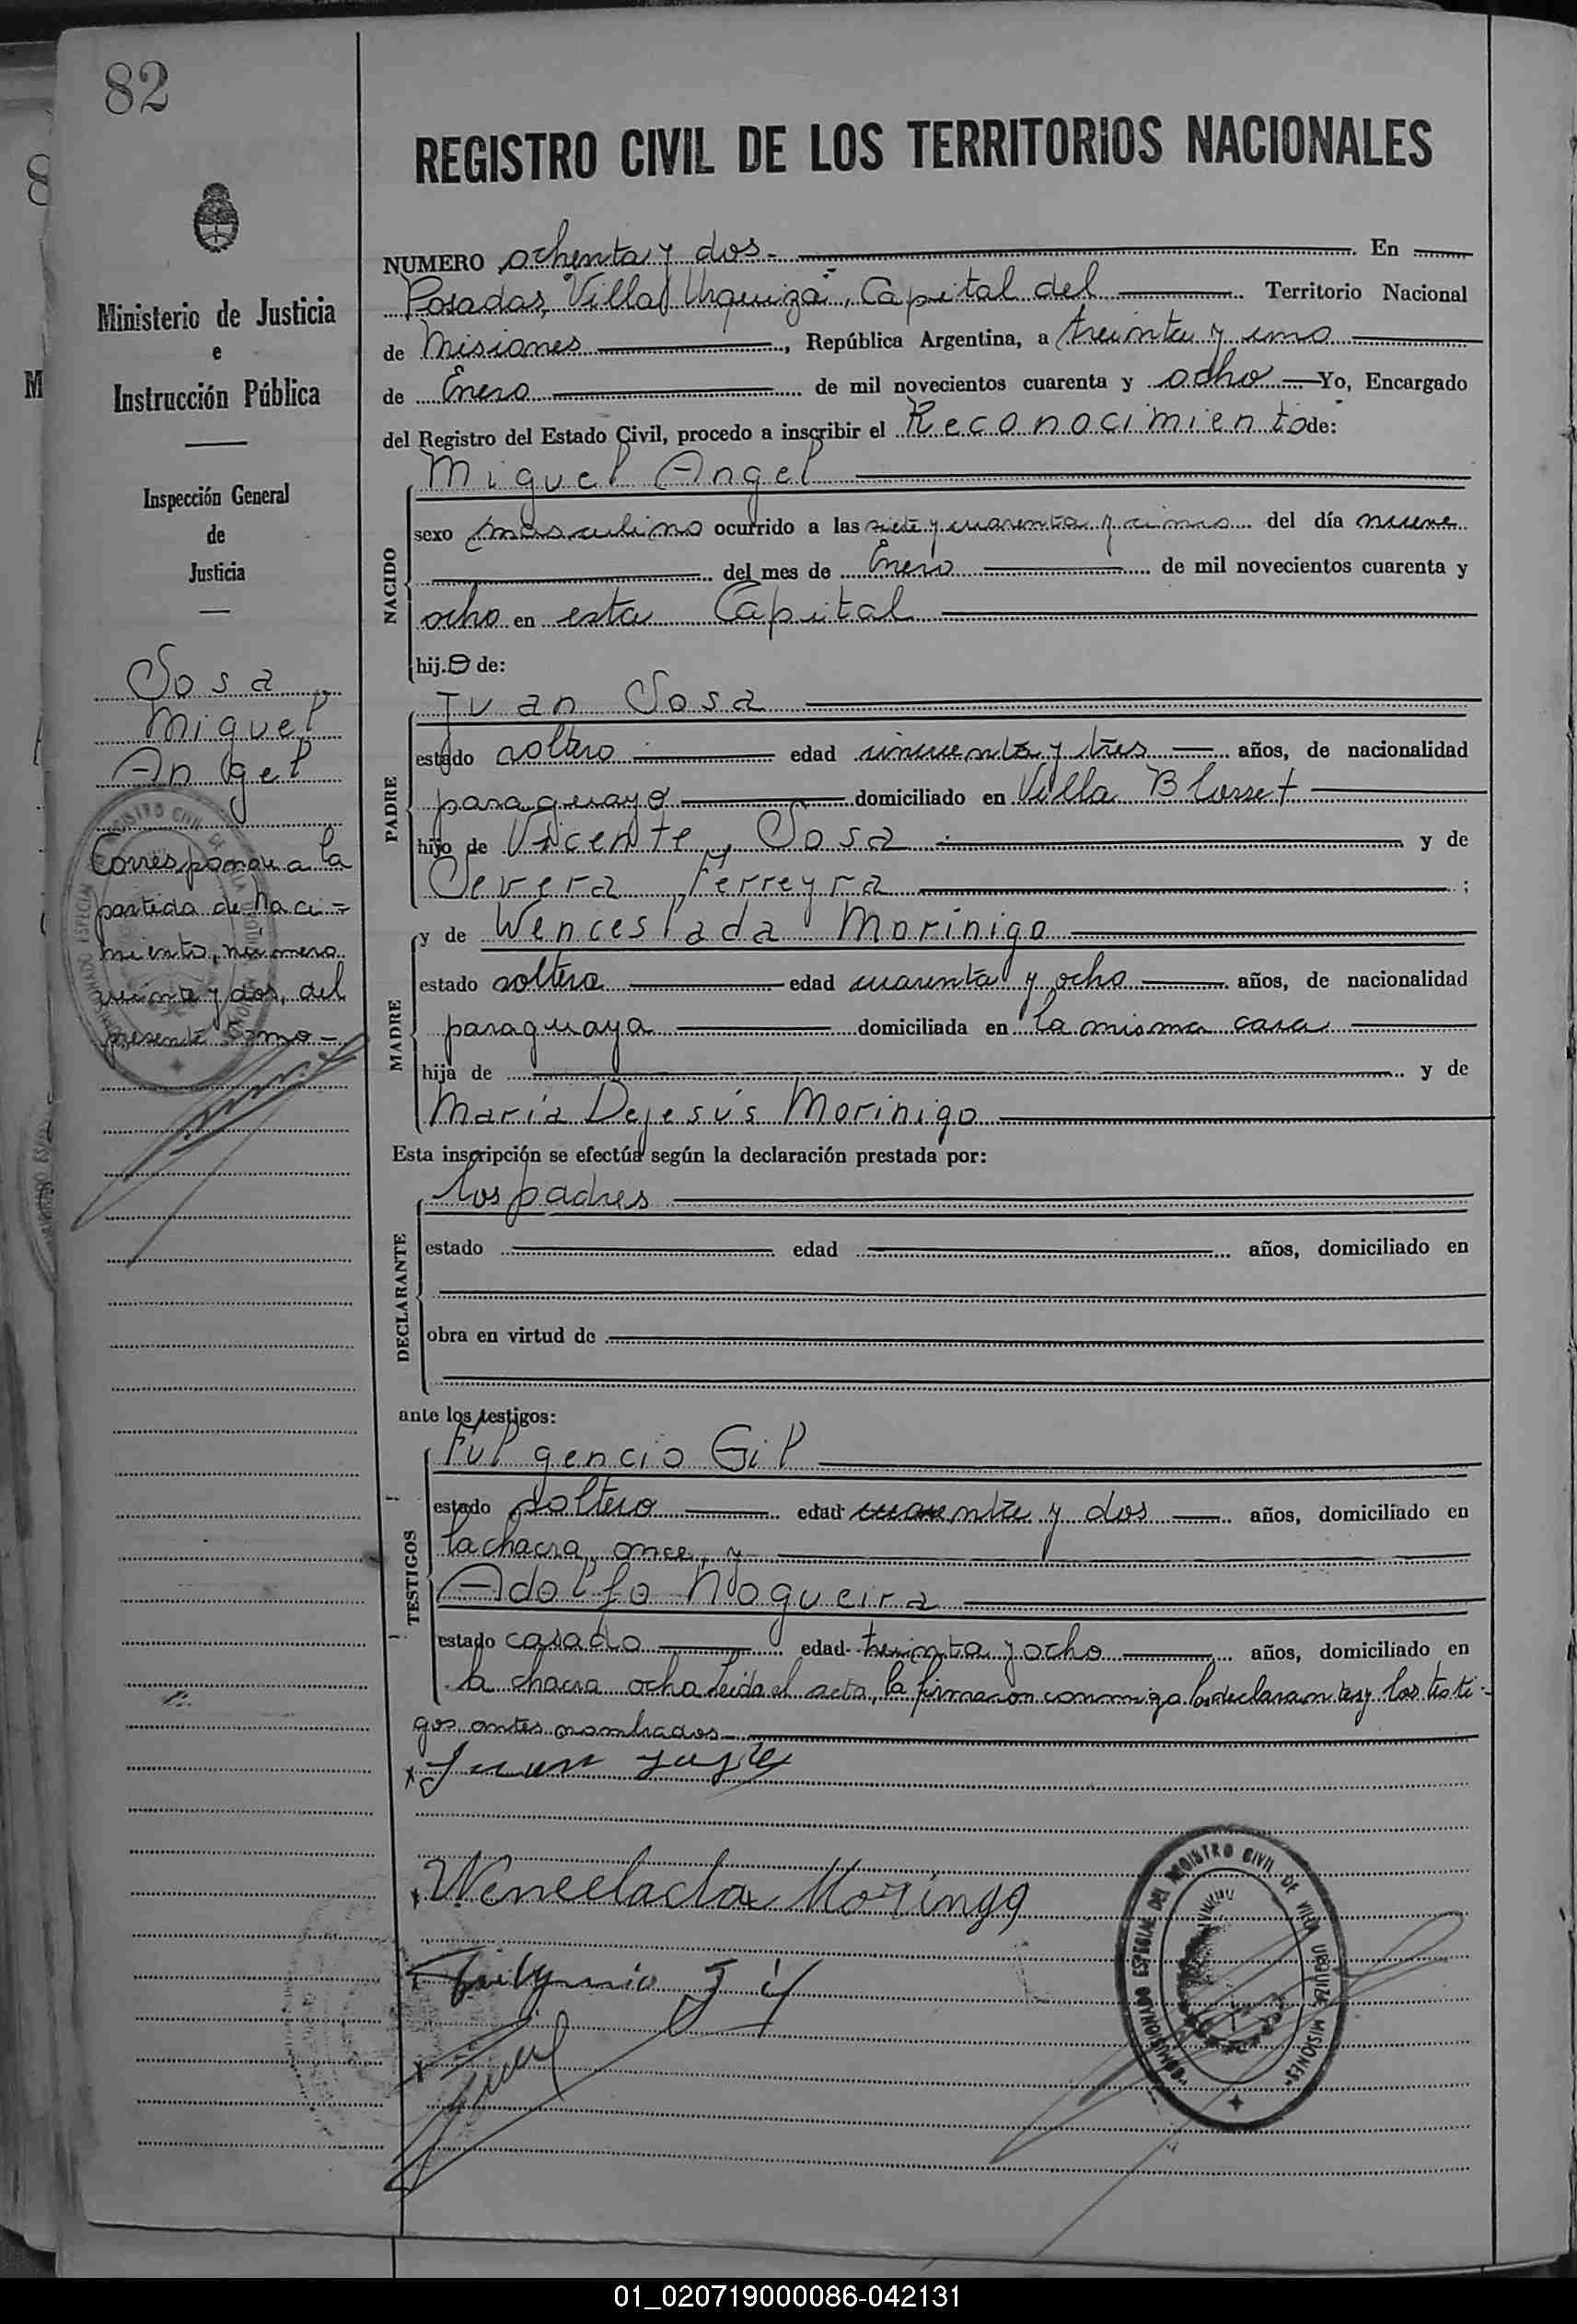 82
REGISTRO CIVIL DE LOS TERRITORIOS NACIONALES
Ministerio de Justicia
e
Instrucción Pública
Inspección General
de
Justicia
Sosa
Miguel
Angel
Corresponde a la
partida de naci-
miento, número
y dos, del
presente tomo-
NUMERO ochenta y dos- En
Posadas, "Villa Urquiza", Capital del Territorio Nacional
de Misiones, República Argentina, a treinta y uno
de Enero de mil novecientos cuarenta y ocho Yo, Encargado
del Registro del Estado Civil, procedo a inscribir el Reconocimiento de:
NACIDO
Miguel Angel
sexo masculino ocurrido a las siete y cuarenta y cinco del día nueve
del mes de Enero de mil novecientos cuarenta y
ocho en esta Capital
hijo de:
PADRE
Juan Sosa
estado soltero edad cincuenta y tres años, de nacionalidad
paraguayo domiciliado en Villa Blosset
hijo de Vicente Sosa y de
Severa Ferreyra ;
MADRE
y de Wenceslada Morinigo
estado soltera edad cuarenta y ocho años, de nacionalidad
paraguaya domiciliada en la misma casa
hija de y de
María Dejesús Morinigo
Esta inscripción se efectúa según la declaración prestada por:
DECLARANTE
los padres
estado edad años, domiciliado en
obra en virtud de
ante los testigos:
TESTIGOS
Fulgencio Gil
estado soltero edad cuarenta y dos años, domiciliado en
la chacra once, y
Adolfo Nogueira
estado casado edad treinta y ocho años, domiciliado en
la chacra ocho. Leída el acta, la firmaron conmigo los declarantes y los testi-
gos antes nombrados
Juan
Wencelada Moringo
COMISIONADO ESPECIAL DEL REGISTRO CIVIL DE VILLA URQUIZA MISIONES
01_020719000086-042131